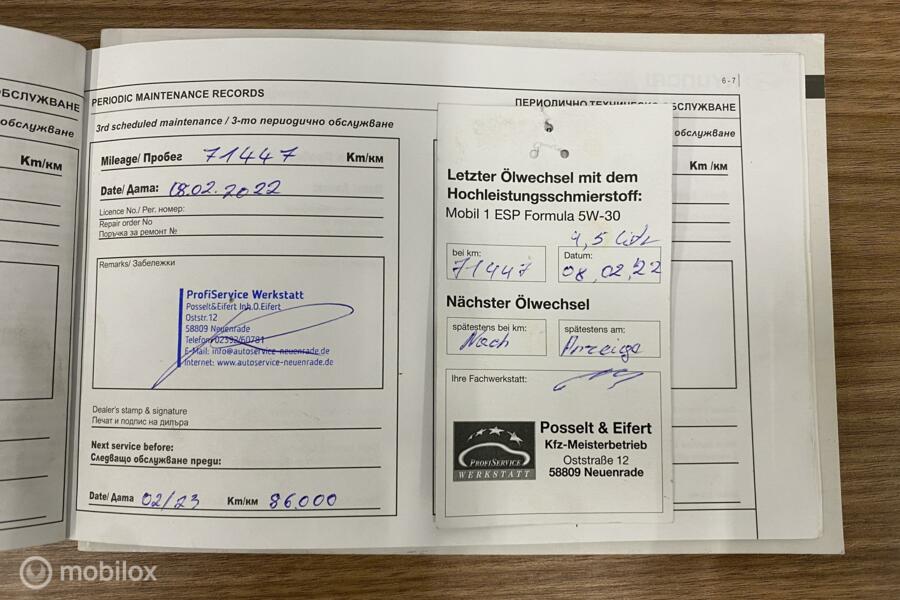 ОБСЛУЖВАНЕ
обслужване
Km/км
6 - 7
PERIODIC MAINTENANCE RECORDS
3rd scheduled maintenance / 3-то периодично обслужване
Mileage/ Пробег 71447 Km/км
Date/ Дата: 18.02.2022
Licence No./ Рег. номер:
Repair order No
Поръчка за ремонт №
Remarks/ Забележки
ProfiService Werkstatt
Posselt&Eifert Inh.O.Eifert
Oststr.12
58809 Neuenrade
Telefon:02392/60781
E-Mail: info@autoservice-neuenrade.de
Internet: www.autoservice-neuenrade.de
Dealer's stamp & signature
Печат и подпис на дилъра
Next service before:
Следващо обслужване преди:
Date/ Дата 02/23 Km/км 86.000
ПЕРИОДИЧНО ОБСЛУЖВАНЕ
обслужване
Km /км
Letzter Ölwechsel mit dem
Hochleistungsschmierstoff:
Mobil 1 ESP Formula 5W-30
4,5 Litr
bei km: 71447
Datum: 08.02.22
Nächster Ölwechsel
spätestens bei km: Nach
spätestens am: Anzeige
Ihre Fachwerkstatt:
PROFISERVICE
WERKSTATT
Posselt & Eifert
Kfz-Meisterbetrieb
Oststraße 12
58809 Neuenrade
mobilox